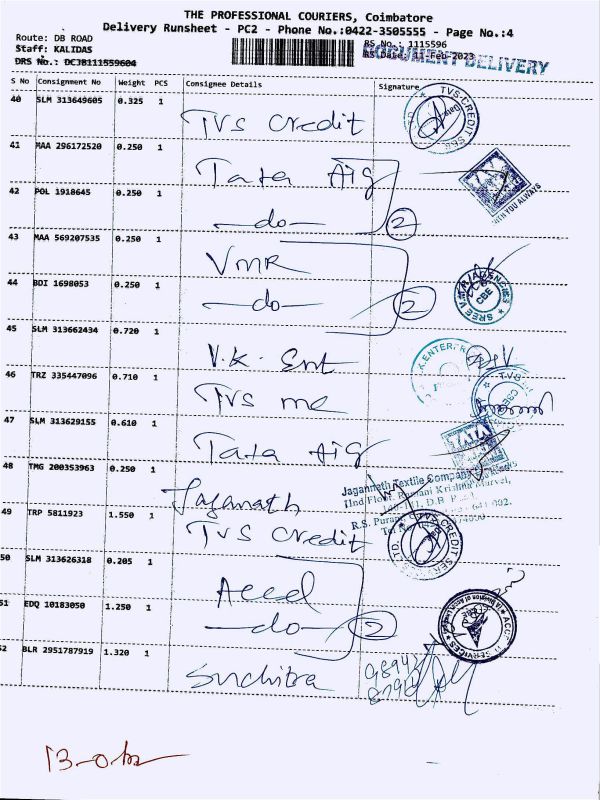 THE PROFESSIONAL COURIERS, Coimbatore
Delivery Runsheet - PC2 - Phone No.:0422-3505555 - Page No.:4
Route: DB ROAD
RS No.: 1115596
Staff: KALIDAS
RS Date: 11-Feb-2023
DOCUMENT DELIVERY
DRS No.: DCJB111559604
S No Consignment No Weight PCS Consignee Details Signature
40 SLM 313649605 0.325 1 TVS Credit
41 MAA 296172520 0.250 1 Tata Aig
42 POL 1918645 0.250 1 -do- 2
43 MAA 569207535 0.250 1 VMR
44 BDI 1698053 0.250 1 -do- 2
45 SLM 313662434 0.720 1 V.K. Ent
46 TRZ 335447096 0.710 1 TVS me
47 SLM 313629155 0.610 1 Tata Aig
48 TMG 200353963 0.250 1 Jaganath
Jagannath Textile Company
IInd Floor, Ramani Krishna Marvel,
49 TRP 5811923 1.550 1 TVS Credit
50 SLM 313626318 0.205 1 Accel
51 EDQ 10183050 1.250 1 -do- 2
52 BLR 2951787919 1.320 1 Suchitra